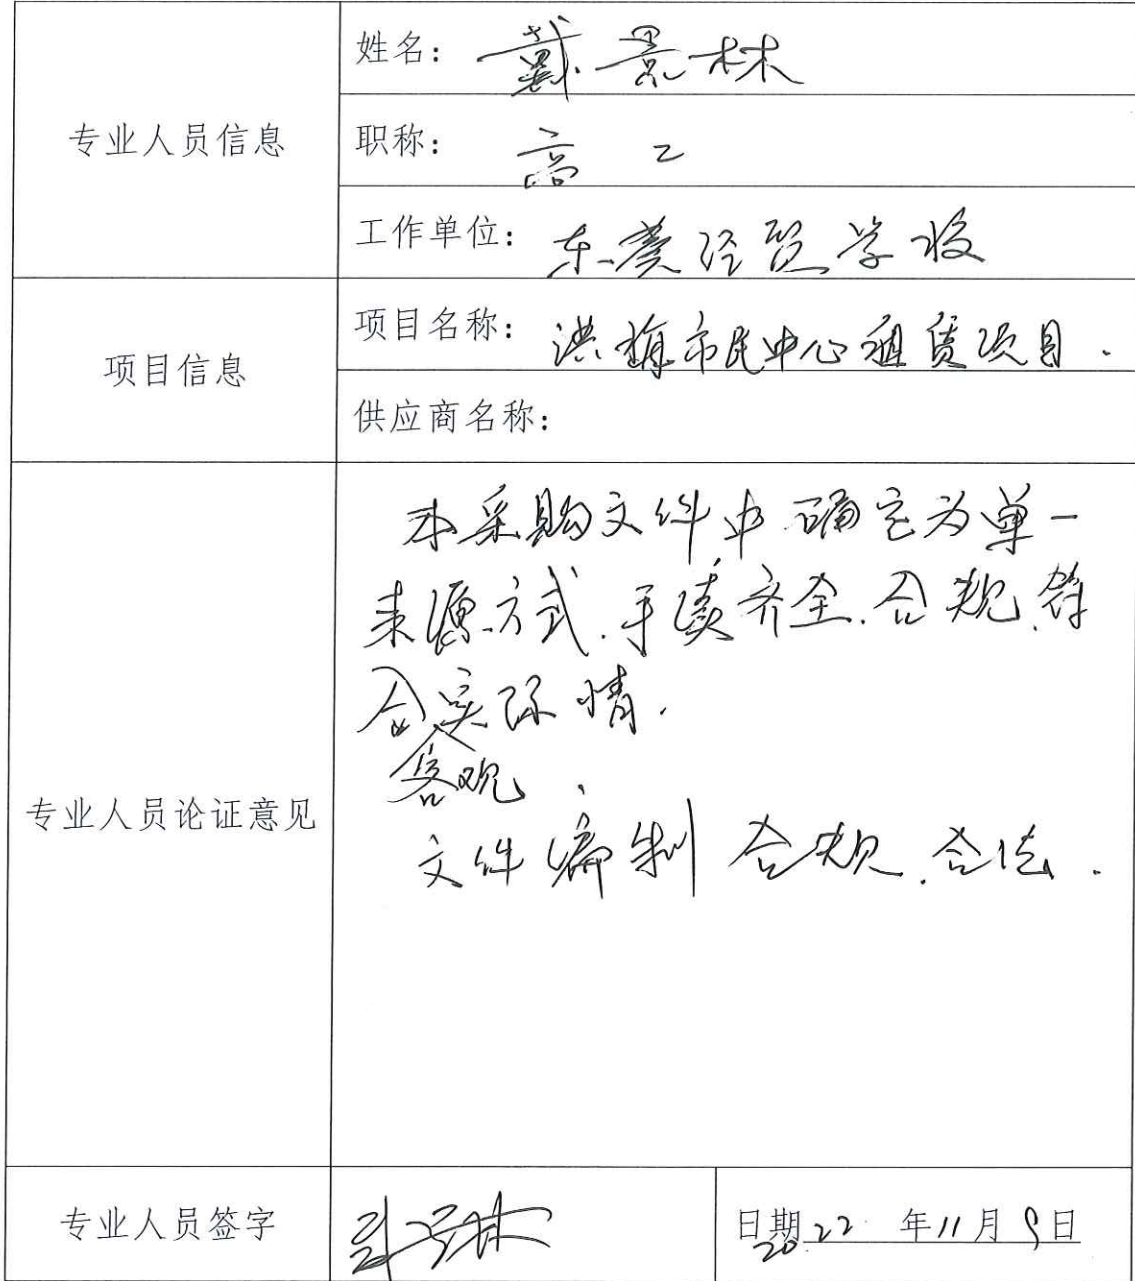 专业人员信息
姓名: 戴景林
职称: 高工
工作单位: 东莞经贸学校
项目信息
项目名称: 洪梅市民中心租赁项目.
供应商名称:
专业人员论证意见
本采购文件中确定为单一
来源方式.手续齐全.合规.符
合实际情.
客观.
文件编制合规.合法.
专业人员签字
日期2022年11月9日